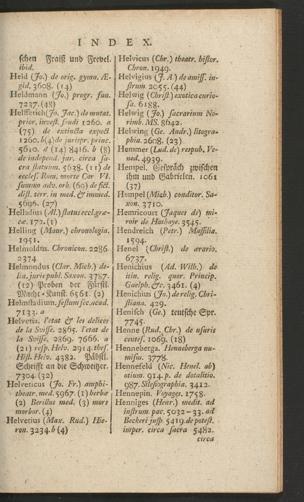 INDEX.
schen Fraiß und Frevel.
ibid.
Held (Jo.) de orig. gymn. Æ-
gid. 3608. (14)
Heldmann (Jo.) progr. fun.
7237. (48)
Helffreich (Jo. Jac.) de mutat.
prior. invest. feudi 1260. a
(75) de extincta expect
1260. b(4) de jurispr. princ.
5610. a (14) 8416. b (8)
de independ. jur. circa sa-
cra statuum. 5638. (11) de
ecclef. Rom. morte Car VI.
summo adv. orb. (60) de fict.
dist. terr. in med. & immed.
5696. (27)
Helladius (Al.) status eccl. græ-
cæ. 172. (1)
Helling (Maur.) chronologia.
1951.
Helmoldus. Chronicon. 2286.
2374
Helmondus (Clar. Mich.) de-
lin. juris publ. Saxon. 3787.
(12) Proben der Fürstl.
Macht-Kunst. 6561. (2)
Helmstadium, festum sæc. acad.
7133. a
Helvetia. l'etat & les delices
de la Suisse. 2865. l'etat de
la Suisse. 2869. 7666. a
(21) resp. Helv. 2914. thes.
Hist. Helv. 4382. Päbstl.
Schrifft an die Schweitzer.
7304 (32)
Helveticus (Jo. Fr.) amphi-
theatr. med. 5967. (1) berbæ
(2) Berillus med. (3) mors
morbor. (4)
Helvetius (Max. Rud.) Hie-
ron. 3234. b (4)
Helvicus (Chr.) theatr. histor.
Chron. 1949.
Helvigius (J. A) de amiss. in-
strum. 2055. (44)
Helwig (Christ.) exotica curio-
sa. 6188.
Helwig (Jo.) sacrarium No-
rimb. MS. 8642.
Helwing (Ge. Andr.) litogra-
phia. 2608. (23)
Hemmer (Lud. de) respub. Ve-
ned. 4939.
Hempel. Gespräch zwischen
ihm und Gabrielen. 1061
(37)
Hempel (Mich.) conditor. Sa-
xon. 3710.
Hemricourt (Jaques de) mi-
roir de Hasbaye. 3545.
Hendreich (Petr.) Massilia.
1594.
Henel (Christ.) de ærario.
6737.
Henichius (Ad. Wilh.) de
itin. relig. quor. Princip.
Guelph. &c. 3461. (4)
Henichius (Jo.) de relig. Chri-
stiana. 429.
Henisch (Ge.) teutsche Spr.
7745.
Henne (Rud. Chr.) de usuris
centes. 1069. (18)
Henneberga. Henneberga nu-
misin. 3778.
Hennefeld (Nic. Henel. ab)
otium. 914. p. de dotalitio.
987. Silesiographia. 3412.
Hennepin. Voyages. 1758.
Henniges (Henr.) medit. ad
instrum pac. 5032-33. ad
Becheri jusp. 5419. de potest.
imper. circa sacra 5482.
circa